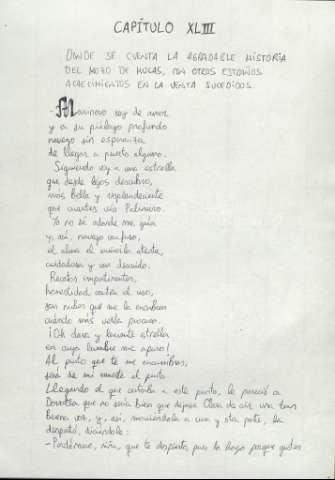 CAPÍTULO XLIII
DONDE SE CUENTA LA AGRADABLE HISTORIA
DEL MOZO DE MULAS, CON OTROS EXTRAÑOS
ACAECIMIENTOS EN LA VENTA SUCEDIDOS.
-Marinero soy de amor
y en su piélago profundo
navego sin esperanza
de llegar a puerto alguno.
Siguiendo voy a una estrella
que desde lejos descubro,
más bella y resplandeciente
que cuantas vio Palinuro.
Yo no sé adonde me guía
y, así, navego confuso,
el alma a mirarla atenta,
cuidadosa y con descuido.
Recatos impertinentes,
honestidad contra el uso,
son nubes que me la encubren
cuando más verla procuro.
¡Oh clara y luciente estrella
en cuya lumbre me apuro!
Al punto que te me encubras,
será de mi muerte el punto.
Llegando el que cantaba a este punto, le pareció a
Dorotea que no sería bien que dejase Clara de oír una tan
buena voz, y, así, moviéndola a una y otra parte, la
despertó, diciéndole:
-Perdóname, niña, que te despierto, pues lo hago porque gustes